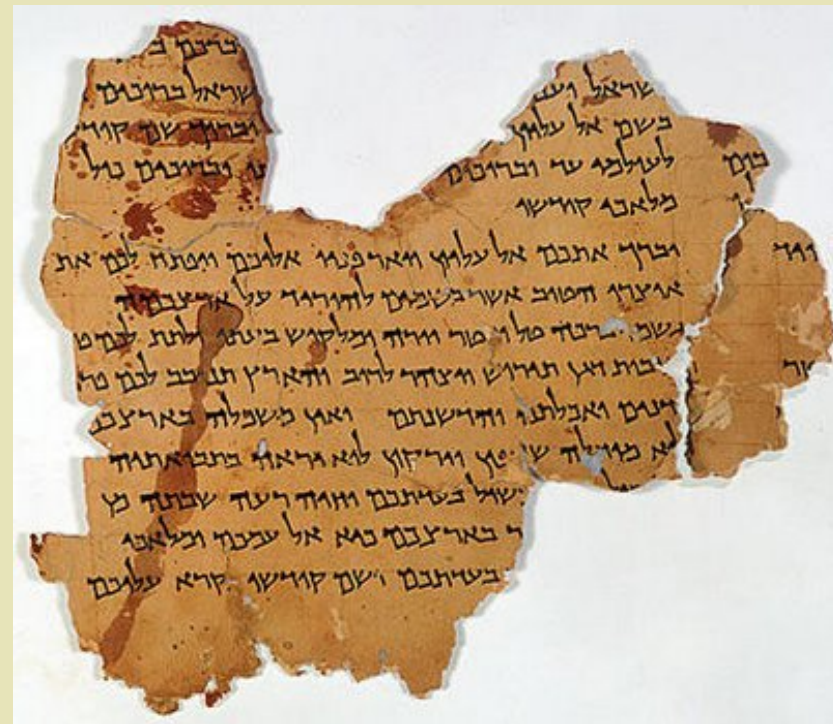 ברכם ב
שראל וענ שראל ברוכים
בשם אל עליון וברוך שם קודש
לעולמי עד וברוכים וברוכים כול
מלאכי קודשו
יברך אתכם אל עליון ויאר פניו אליכם ויפתח לכם את
אוצרו הטוב אשר בשמים להוריד על ארצכמה
גשמי ברכה טל ומטר יורה ומלקוש בעתו ולתת לכם
דגן תירוש ויצהר לרוב והארץ תנובב לכם
ואכלתם והדשנתם ואין משכלה בארצכם
לא מוחלה שדפון וירקון לוא יראה בתבואתיה
שול בעדתכם וחיה רעה שבתה מן
ר בארצכם כיא אל עמכם ומלאכי
בעדתכם ושם קודשו נקרא עליכם